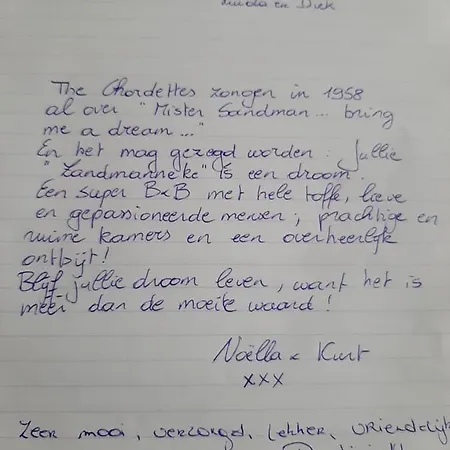 en Dirk
The Chordettes zongen in 1958
al over "Mister Sandman... bring
me a dream..."
En het mag gezegd worden: Jullie
"Zandmanneke" is een droom.
Een super B&B met hele toffe, lieve
en gepassioneerde mensen; prachtige en
ruime kamers en een overheerlijk
ontbijt!
Blijf jullie droom leven, want het is
meer dan de moeite waard!
Noëlla & Kurt
xxx
Zeer mooi, verzorgd, lekker, vriendelijk